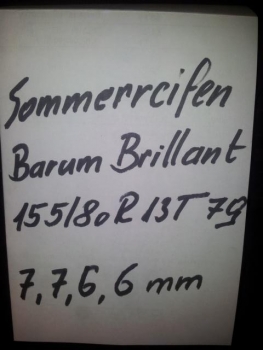 Sommerreifen
Barum Brillant
155/80 R 13T 79
7,7,6,6 mm